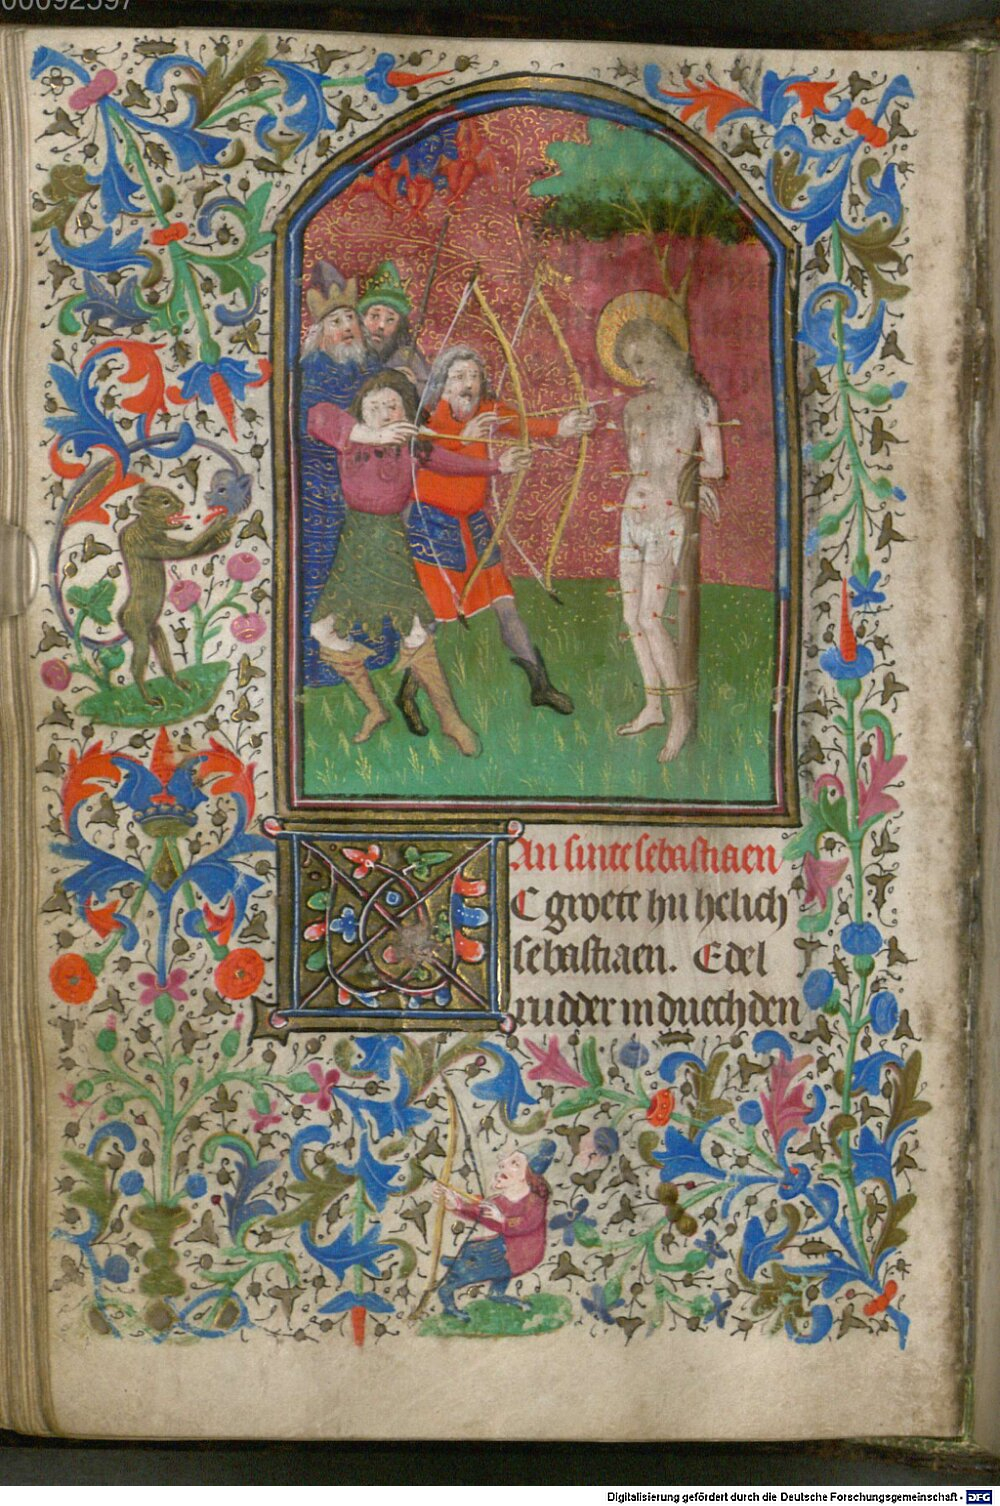 00092597
An sinte sebastiaen
C groete hu helich
sebastiaen. Edel
rudder in duechden
Digitalisierung gefördert durch die Deutsche Forschungsgemeinschaft - DFG